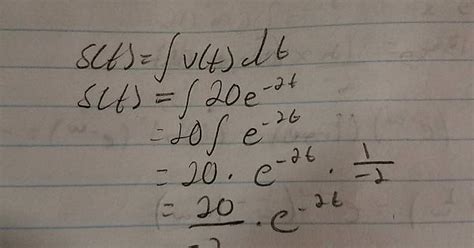 s(t) = ∫ v(t) dt
s(t) = ∫ 20e^{-2t}
= 20 ∫ e^{-2t}
= 20 · e^{-2t} · \frac{1}{-2}
= \frac{20}{-2} · e^{-2t}